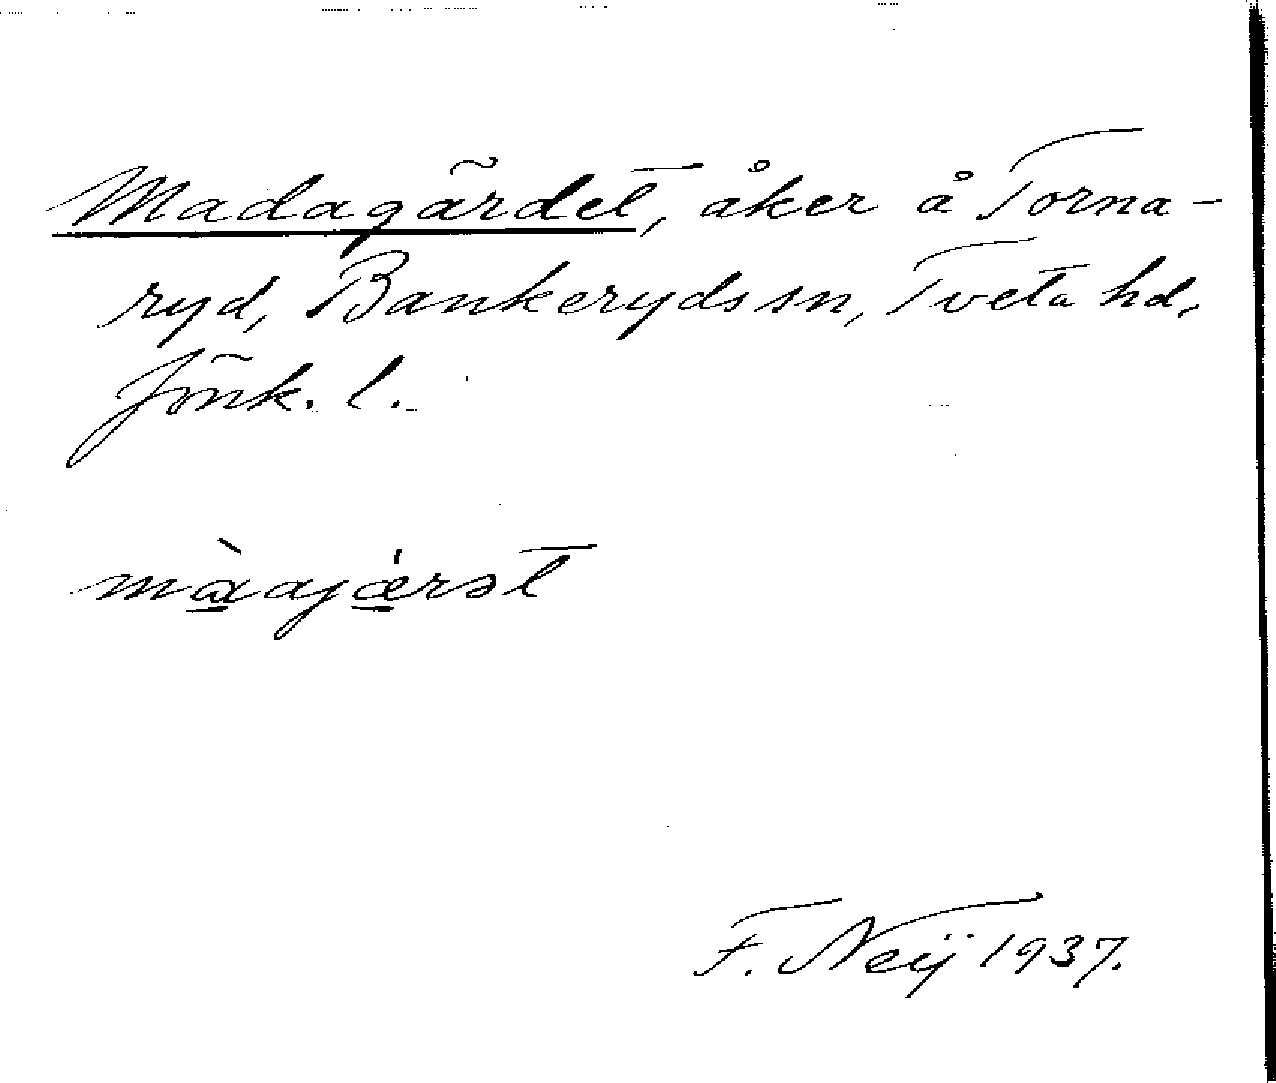 Madagärdet, åker å Torna-
ryd, Bankeryds sn, Tveta hd,
Jönk. l.
mὰajǽrət
F. Neij 1937.